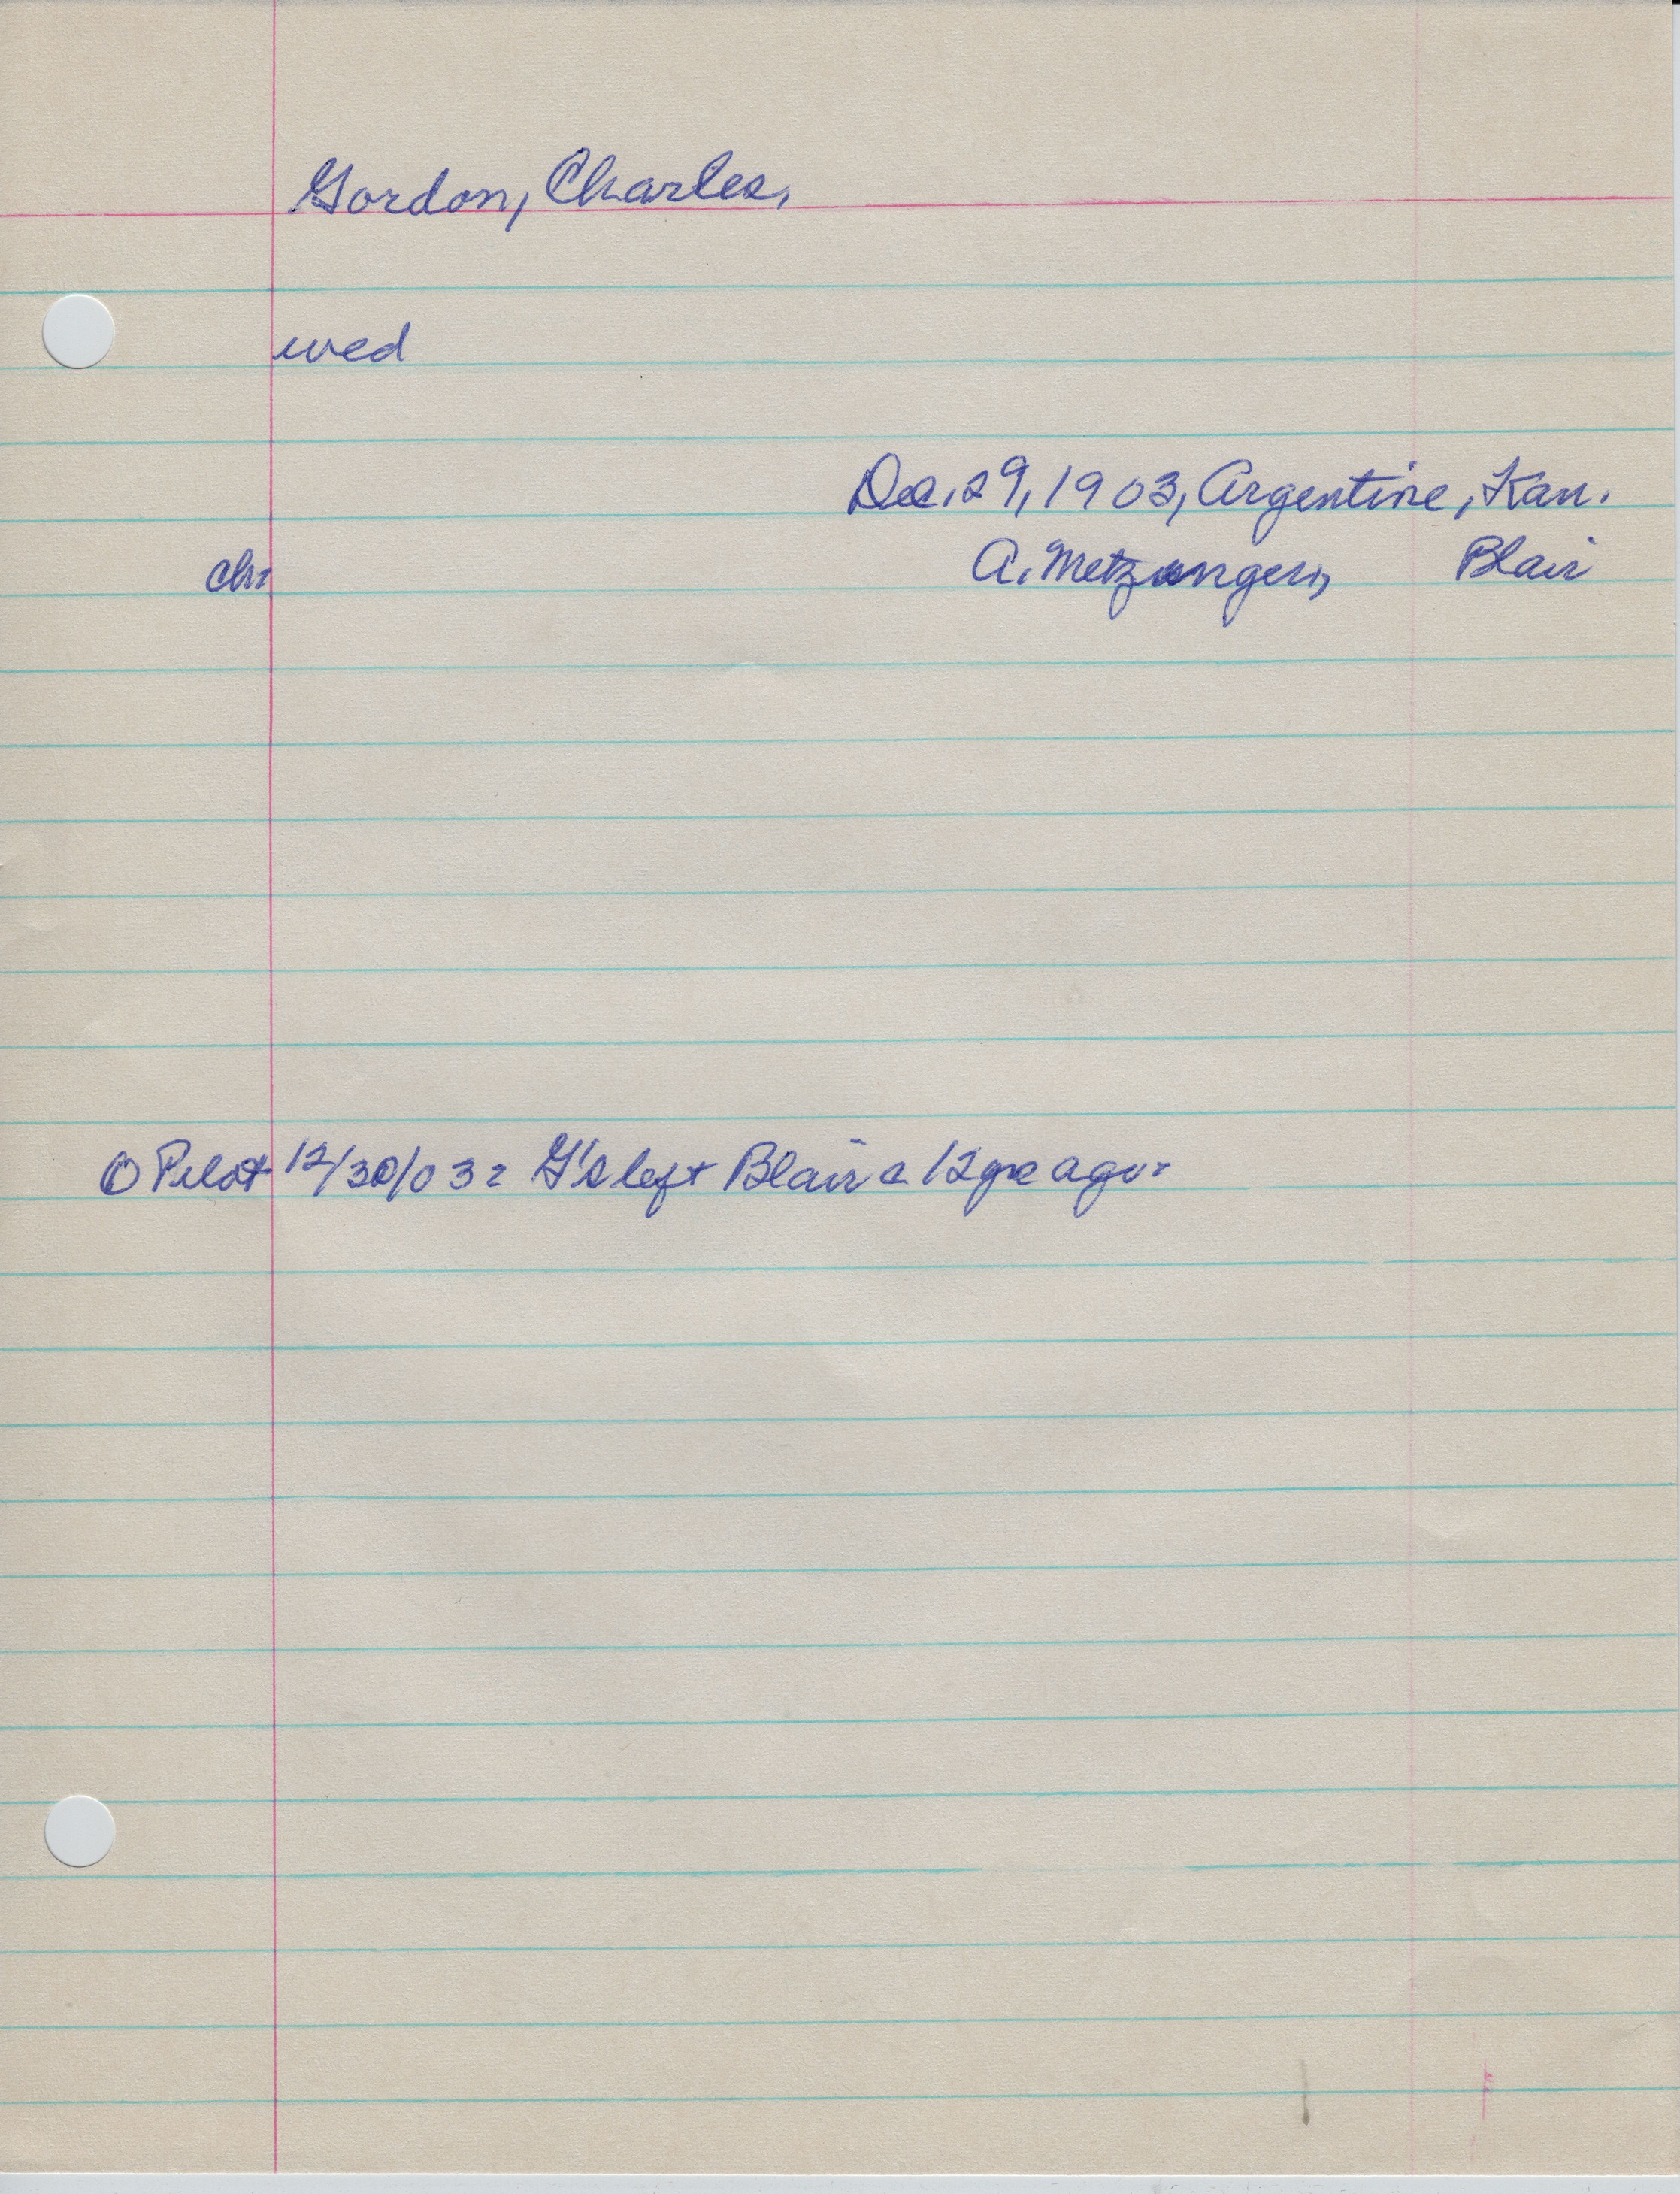 Gordon, Charles,
wed
Dec. 29, 1903, Argentine, Kan.
ch: A. Metzunger's, Blair
① Pilot 12/30/03: G's left Blair c 12 yrs ago.